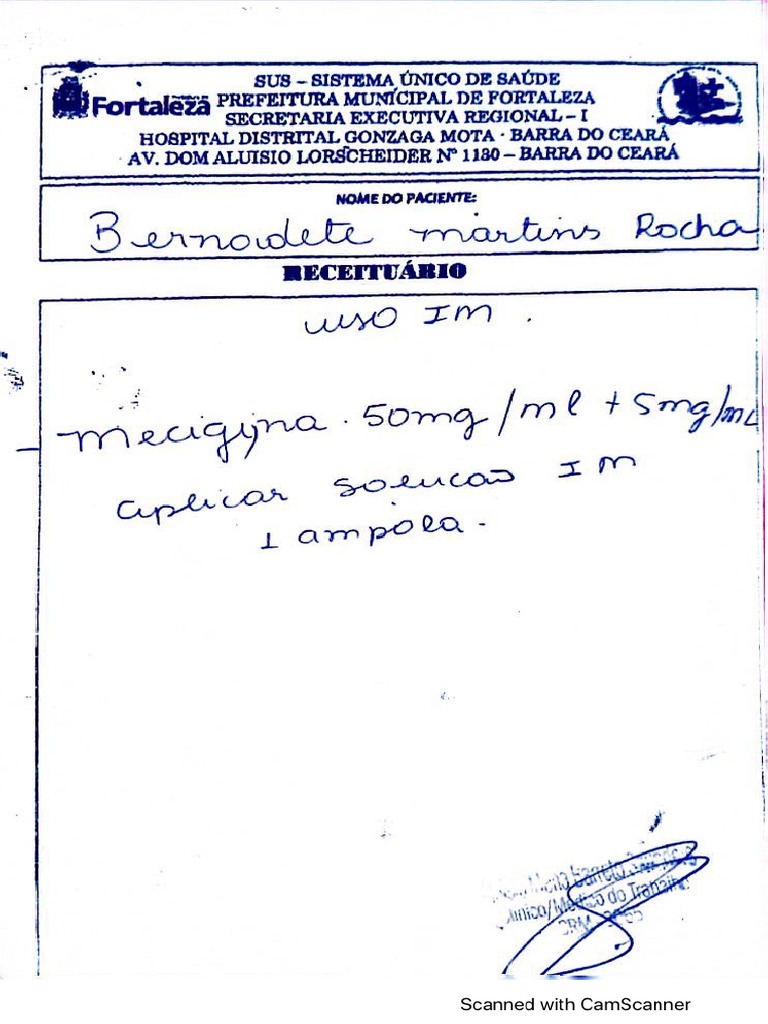 SUS – SISTEMA ÚNICO DE SAÚDE
Fortaleza PREFEITURA MUNICIPAL DE FORTALEZA
SECRETARIA EXECUTIVA REGIONAL – I
HOSPITAL DISTRITAL GONZAGA MOTA - BARRA DO CEARÁ
AV. DOM ALUISIO LORSCHEIDER Nº 1130 – BARRA DO CEARÁ
NOME DO PACIENTE:
Bernadete martins Rocha
RECEITUÁRIO
uso IM.
- mecigyna. 50mg/ml + 5mg/mL
aplicar solucao IM
1 ampola.
Barreto
Clínico/Médico do Trabalho
CRM
Scanned with CamScanner